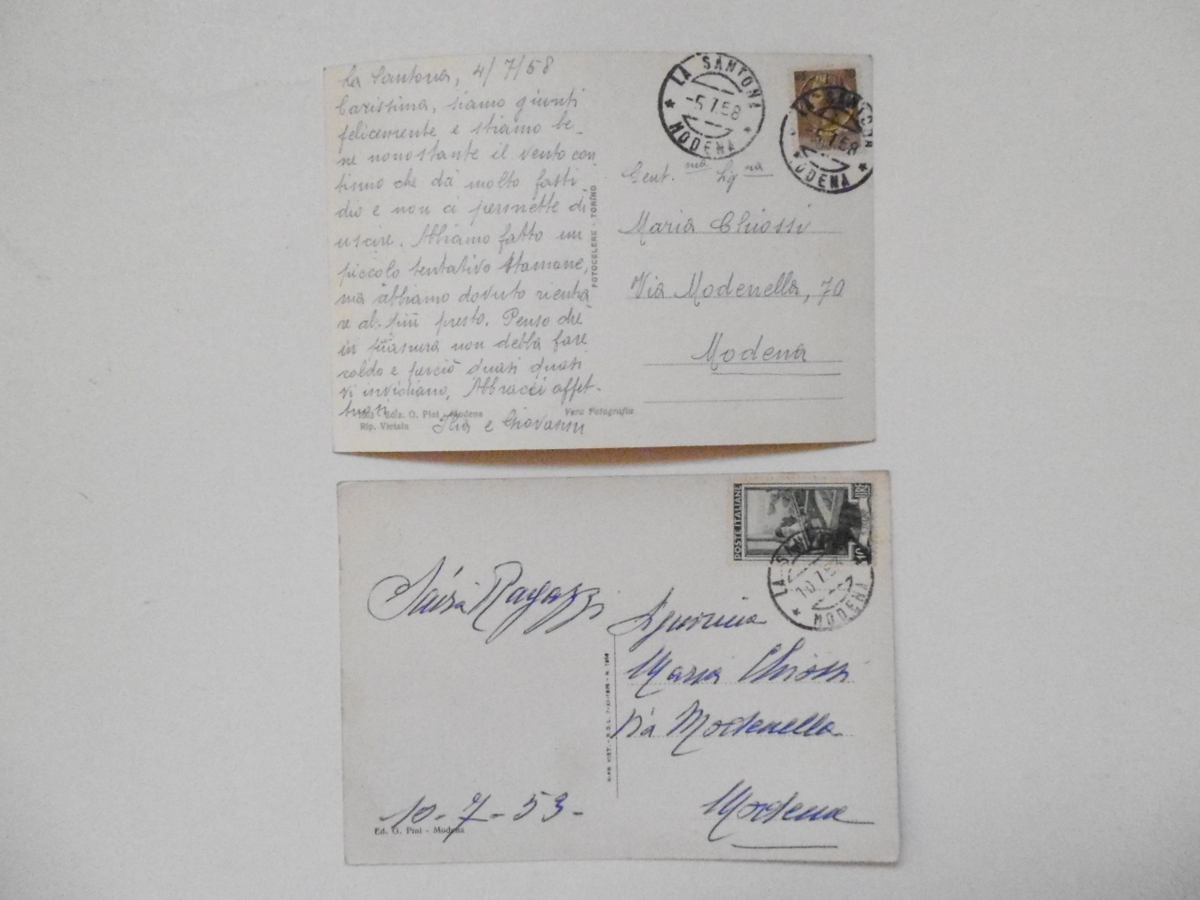 La Santona, 4/7/58
Carissima, siamo giunti
felicemente e stiamo be-
ne nonostante il vento con
tinuo che dà molto fasti
dio e non ci permette di
uscire. Abbiamo fatto un
piccolo tentativo stamane,
ma abbiamo dovuto rientra
re al più presto. Penso che
in pianura non debba fare
caldo e perciò quasi quasi
vi invidiamo, Abbracci affet-
tuosi
Ilia e Giovanni
Ediz. G. Pini - Modena
Rip. Vietata
Vera Fotografia
FOTOCELERE - TORINO
LA SANTONA
-5.7.58
MODENA
LA SANTONA
-5.7.58
MODENA
Gent.ma Sig.na
Maria Chiossi
Via Modenella, 70
Modena
POSTE ITALIANE
LIRE
LA SANTONA
10.7.53
MODENA
Ragazzi
Signorina
Maria Chiossi
Via Modenella
Modena
10-7-53-
Ed. G. Pini - Modena